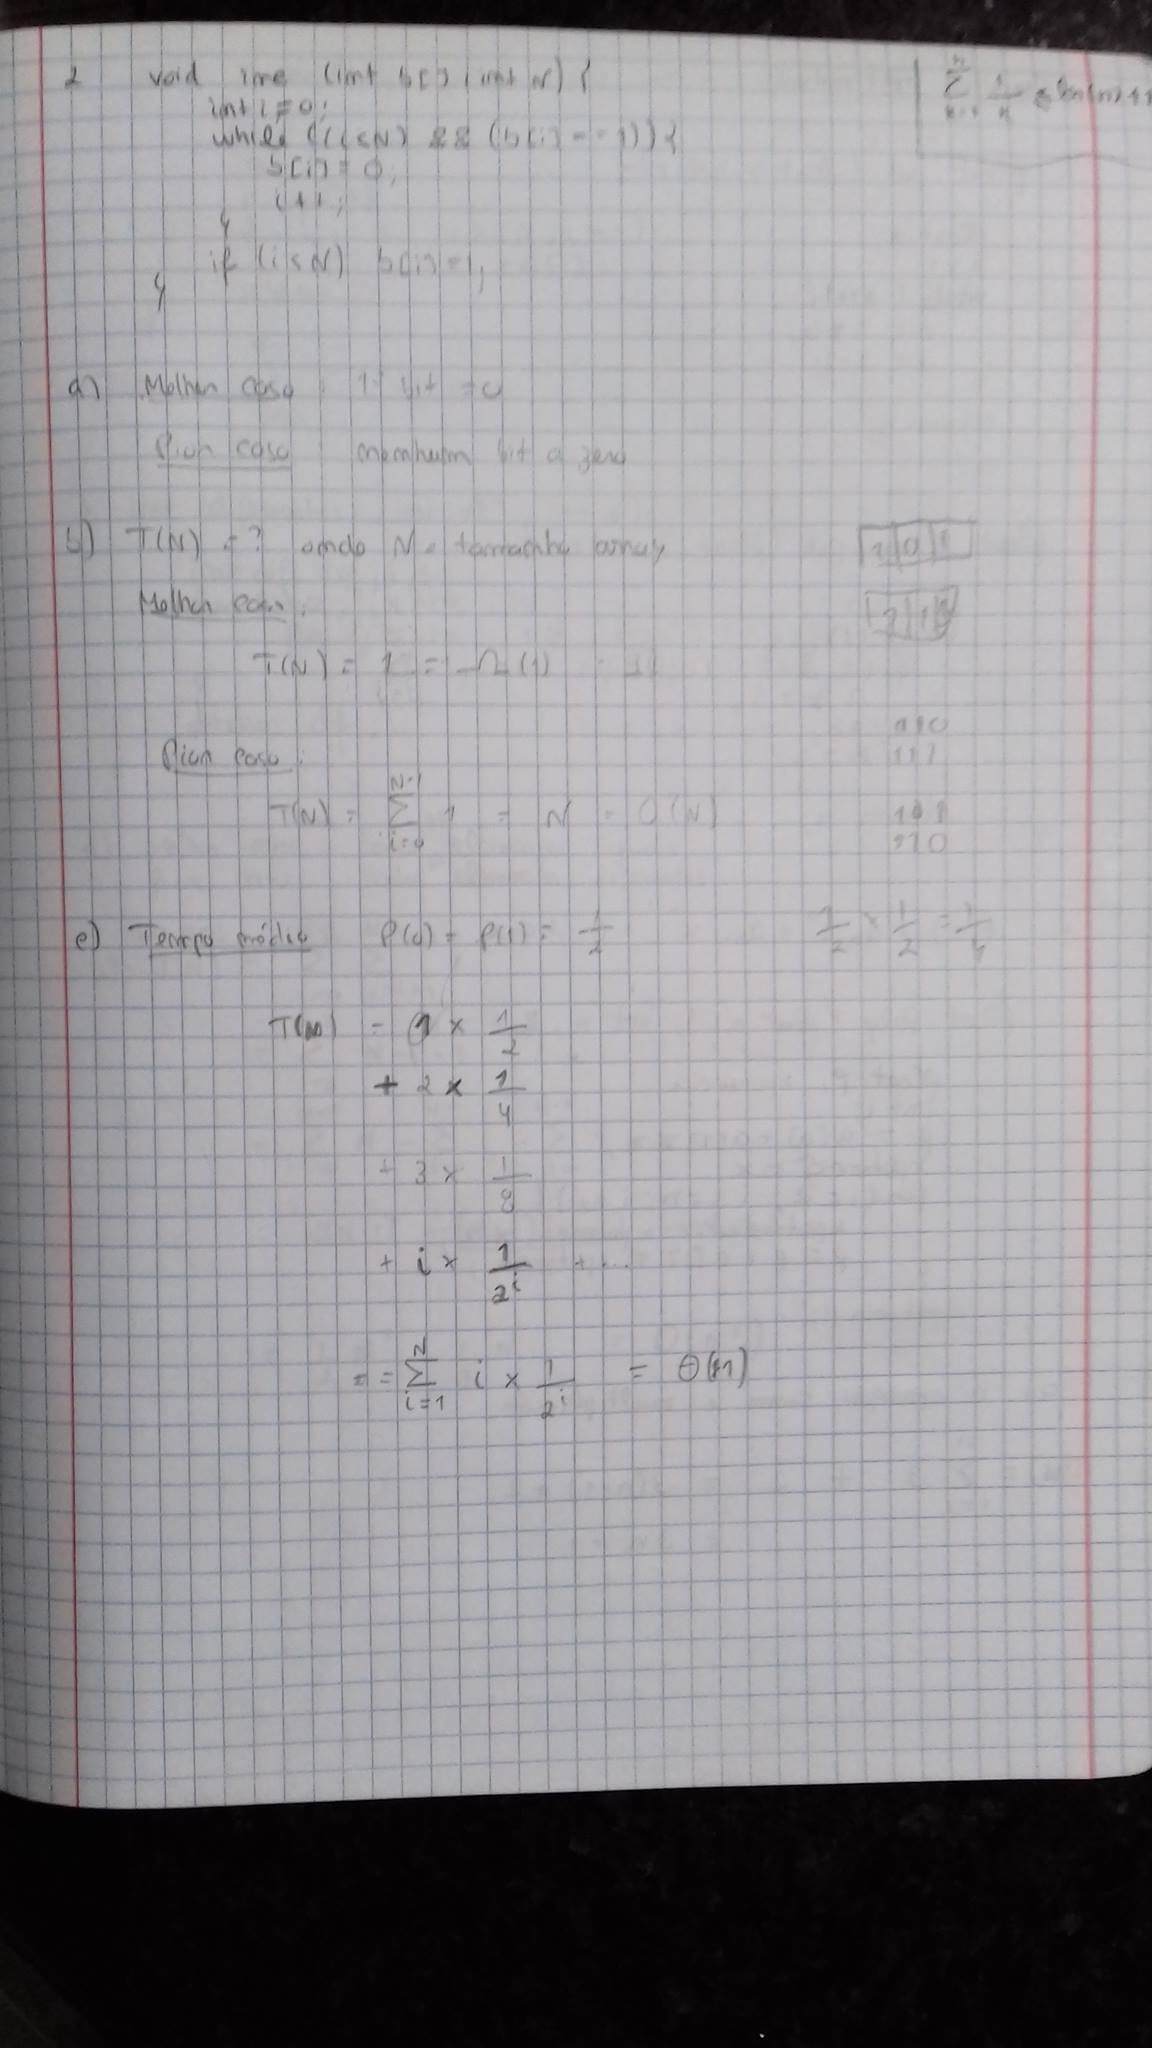 2 void inc (int b[], int N) {
int i = 0;
while ((i<N) && (b[i] == 1)) {
b[i] = 0;
i++;
}
if (i<N) b[i] = 1;
}
a) Melhor caso : 1º bit = 0
Pior caso nenhum bit a zero
b) T(N) = ? onde N = tamanho array
Melhor caso:
T(N) = 1 = Ω(1)
Pior caso:
T(N) = Σ 1 = N = O(N)
c) Tempo médio P(0) = P(1) = 1/2
1/2 × 1/2 = 1/4
T(N) = 1 × 1/2
+ 2 × 1/4
+ 3 × 1/8
+ i × 1/2^i + ...
= Σ i=1 i × 1/2^i = Θ(1)